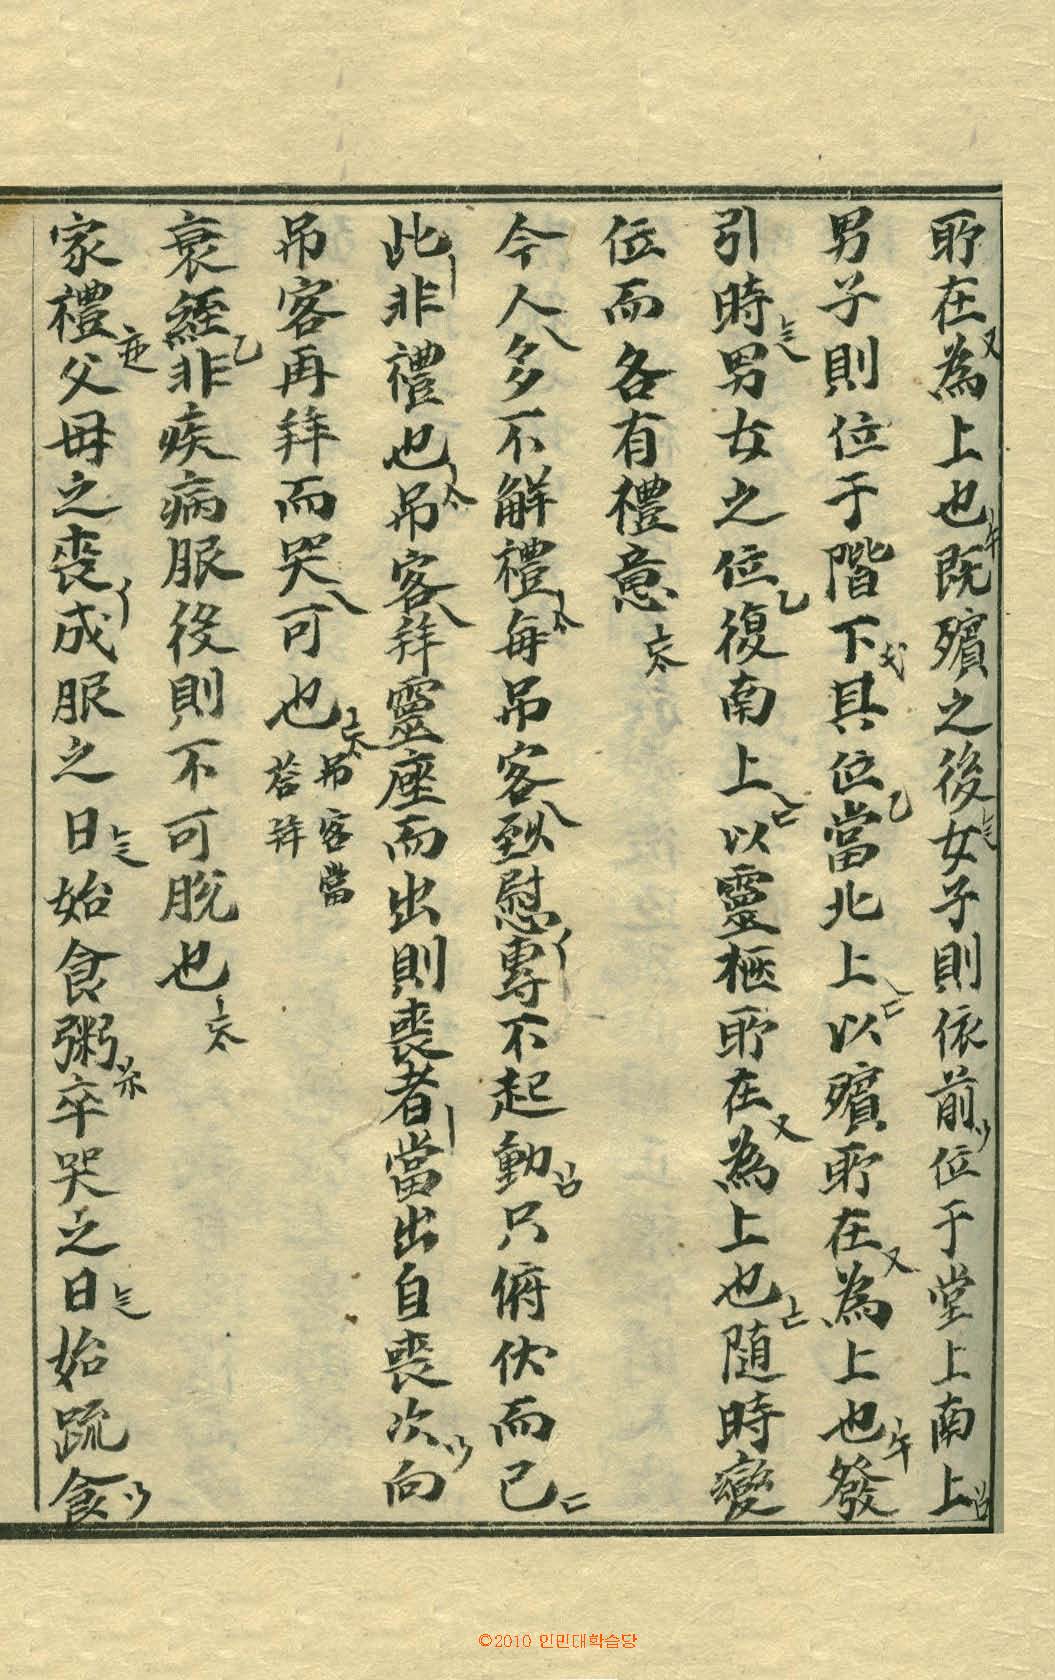 所在為上也既殯之後女子則依前位于堂上南上
男子則位于階下其位當北上以殯所在為上也發
引時男女之位復南上以靈柩所在為上也隨時變
位而各有禮意
今人多不解禮每吊客致慰專不起動只俯伏而已
此非禮也吊客拜靈座而出則喪者當出自喪次向
吊客再拜而哭可也吊客當答拜
衰絰非疾病服役則不可脫也
家禮父母之喪成服之日始食粥卒哭之日始疏食
©2010 인민대학습당